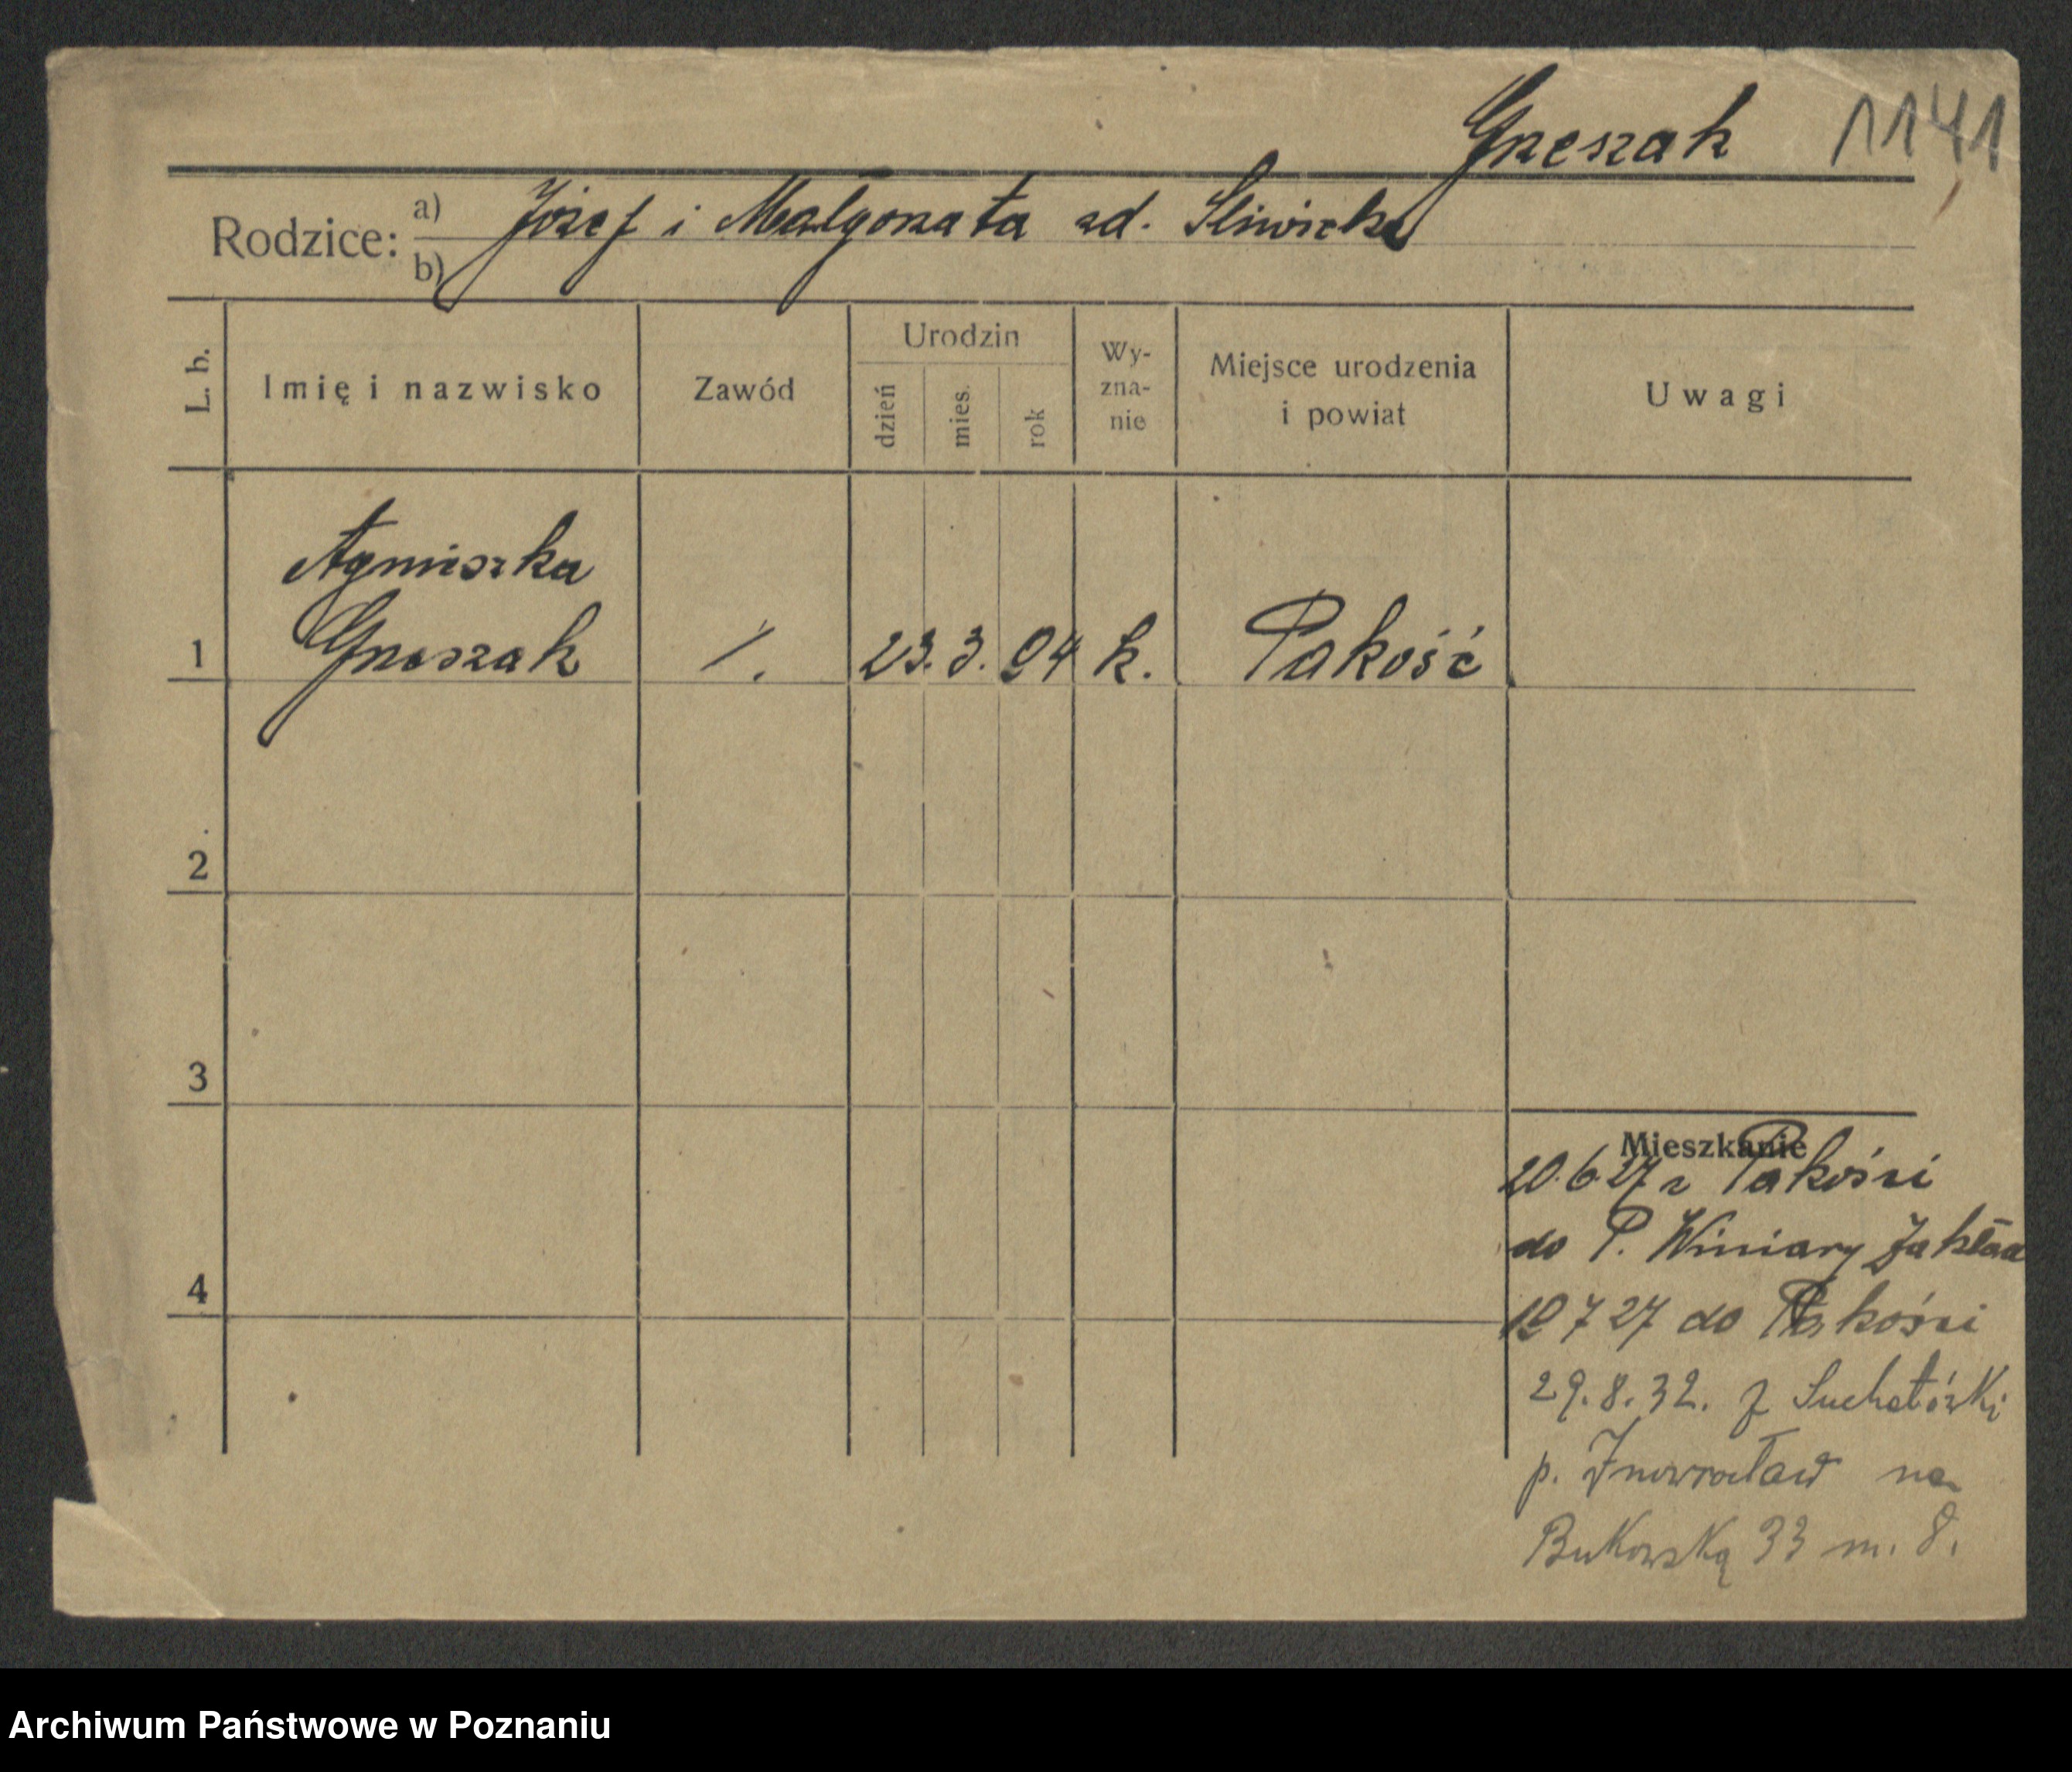 Grzeszak 1141
Rodzice: a) Józef i Małgorzata zd. Śliwicka
b)
L. b. Imię i nazwisko Zawód Urodzin dzień mies. rok Wy-zna-nie Miejsce urodzenia i powiat Uwagi
Agnieszka
1 Grzeszak /. 23. 3. 04 k. Pakość
2
3
Mieszkanie
20.6.27 z Pakości
do P. Winiary Zakład
4
10 7 27 do Pakości
29.8.32. z
p. Inowrocław na
Bukowską 33 m. 8.
Archiwum Państwowe w Poznaniu